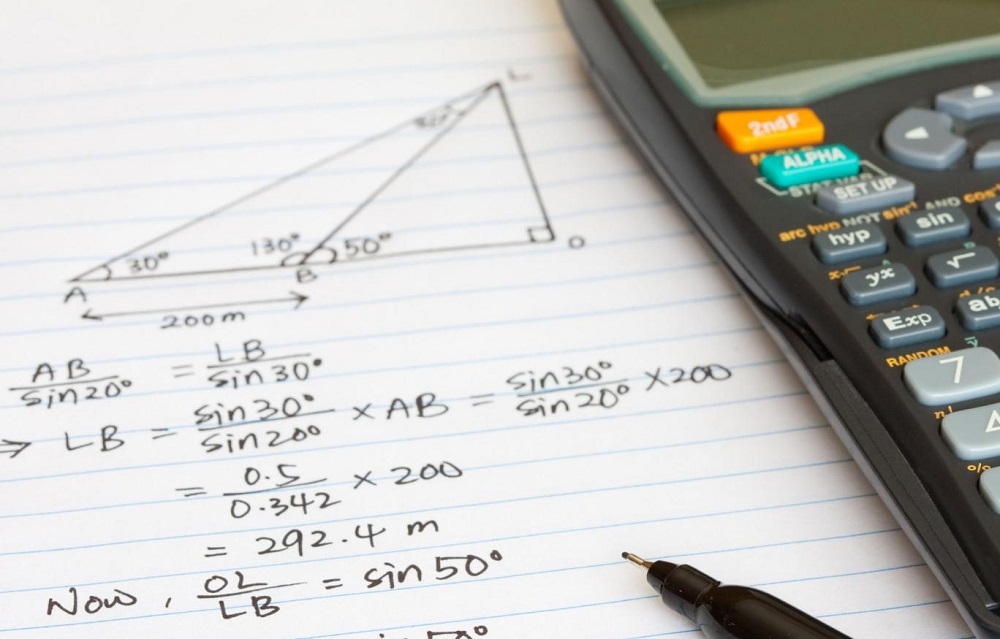 L
20°
30° 130° 50°
A B O
200m
AB/sin20° = LB/sin30°
⇒ LB = sin30°/sin20° × AB = sin30°/sin20° ×200
= 0.5/0.342 × 200
= 292.4 m
Now, OL/LB = sin50°
2ndF
ALPHA
SET UP
arc hyp NOT sin⁻¹ AND cos
hyp sin
yx √
Exp ab
RANDOM
7
n!